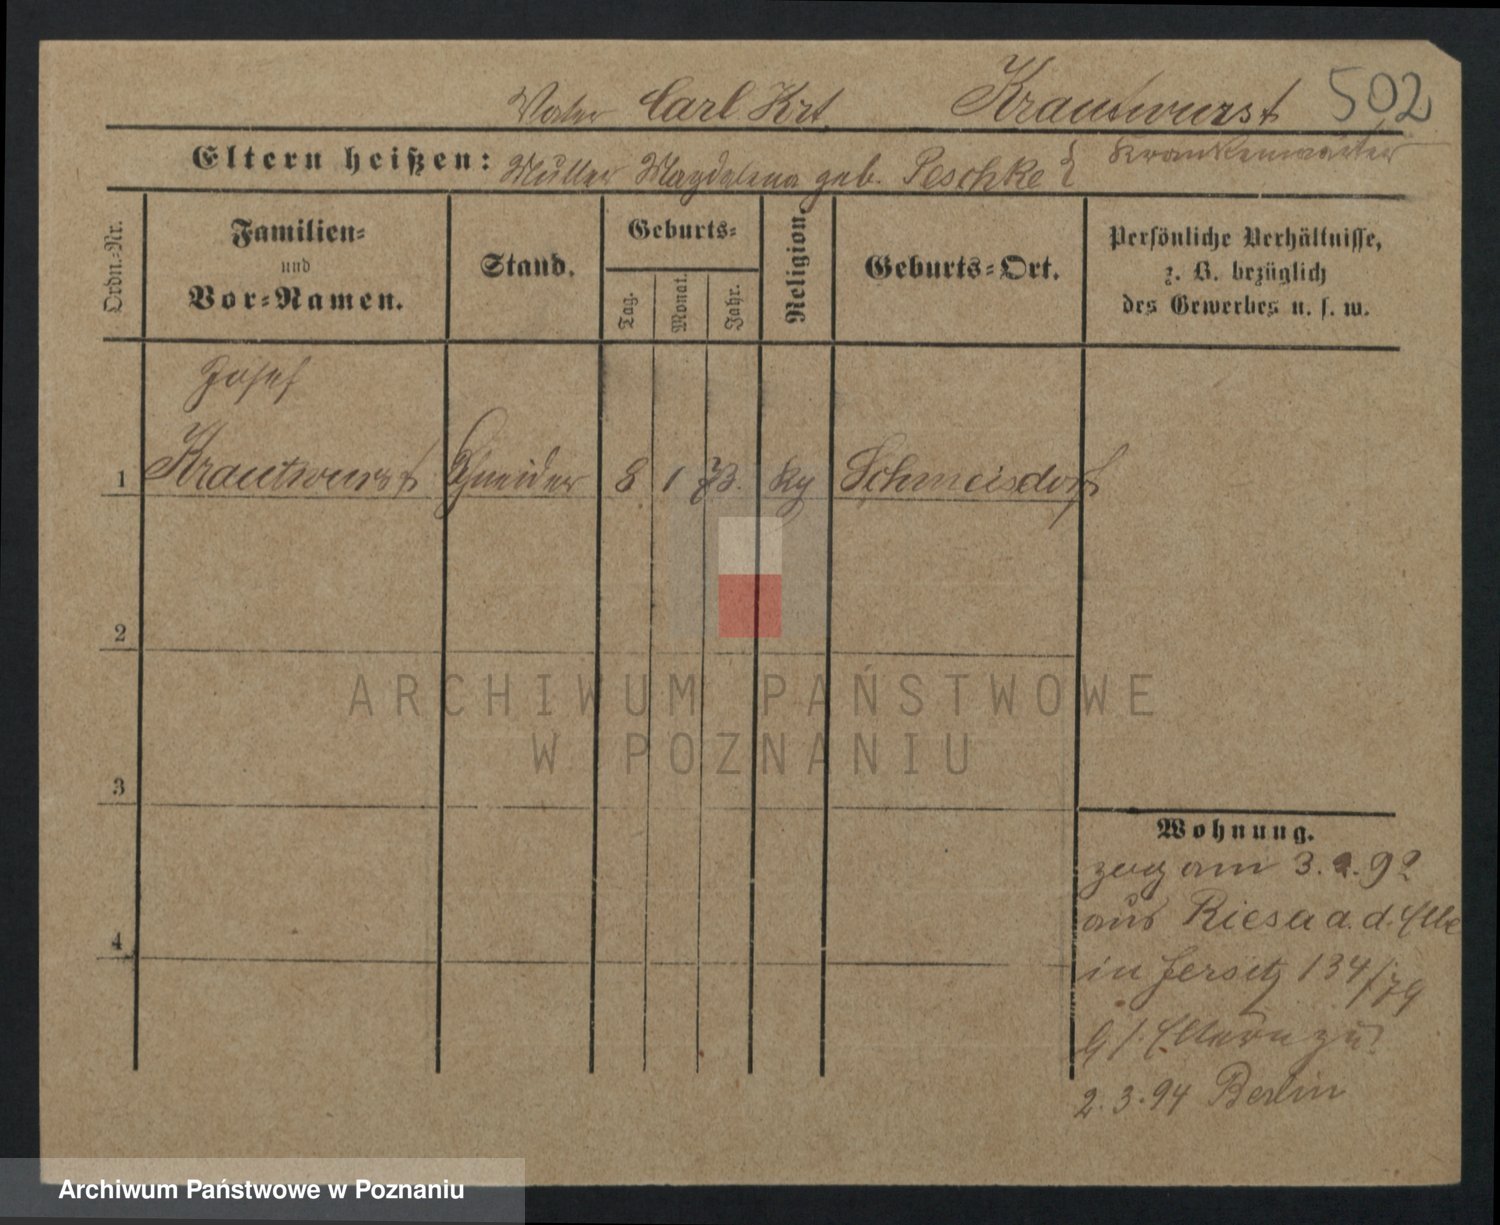 Vater Carl Krt Krautwurst 502
Eltern heißen: Mutter Magdalena geb. Peschke } Krankenwärter
Ordn.-Nr.
Familien-
und
Vor-Namen.
Stand.
Geburts-
Tag.
Monat.
Jahr.
Religion.
Geburts-Ort.
Persönliche Verhältnisse,
z. B. bezüglich
des Gewerbes u. s. w.
Josef
1 Krautwurst Schneider 8 1 73. kg Schmeisdorf
2
3
4
Wohnung.
zog am 3.2.92
aus Riesa a. d. Elbe
in Jersitz 134/79
b/. Eltern zu
2.3.94 Berlin
ARCHIWUM PAŃSTWOWE
W POZNANIU
Archiwum Państwowe w Poznaniu